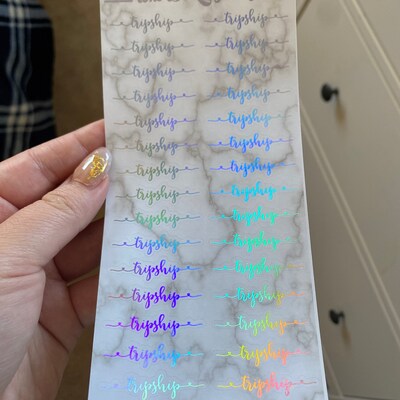 tripship tripship
tripship tripship
tripship tripship
tripship tripship
tripship tripship
tripship tripship
tripship tripship
tripship tripship
tripship tripship
tripship tripship
tripship tripship
tripship tripship
tripship tripship
tripship tripship
tripship tripship